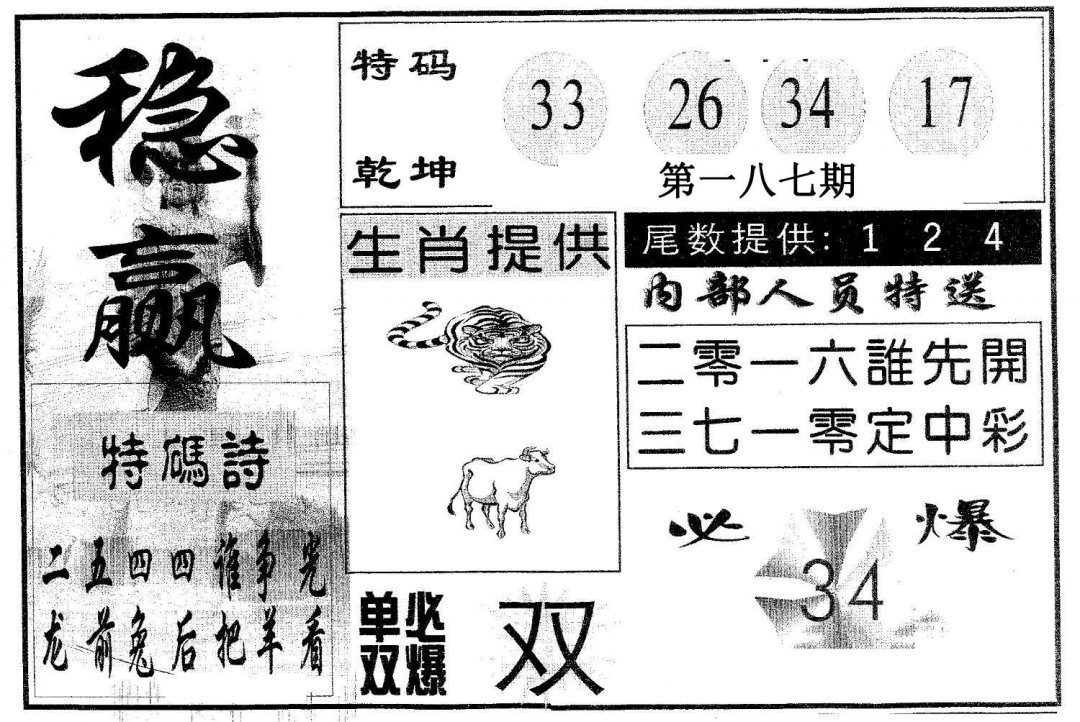 稳赢
特码
乾坤
33 26 34 17
第一八七期
生肖提供
尾数提供: 1 2 4
内部人员特送
二零一六誰先開
三七一零定中彩
特碼詩
二五四四谁争光
龙前兔后把羊看
必爆
34
单双
必爆
双